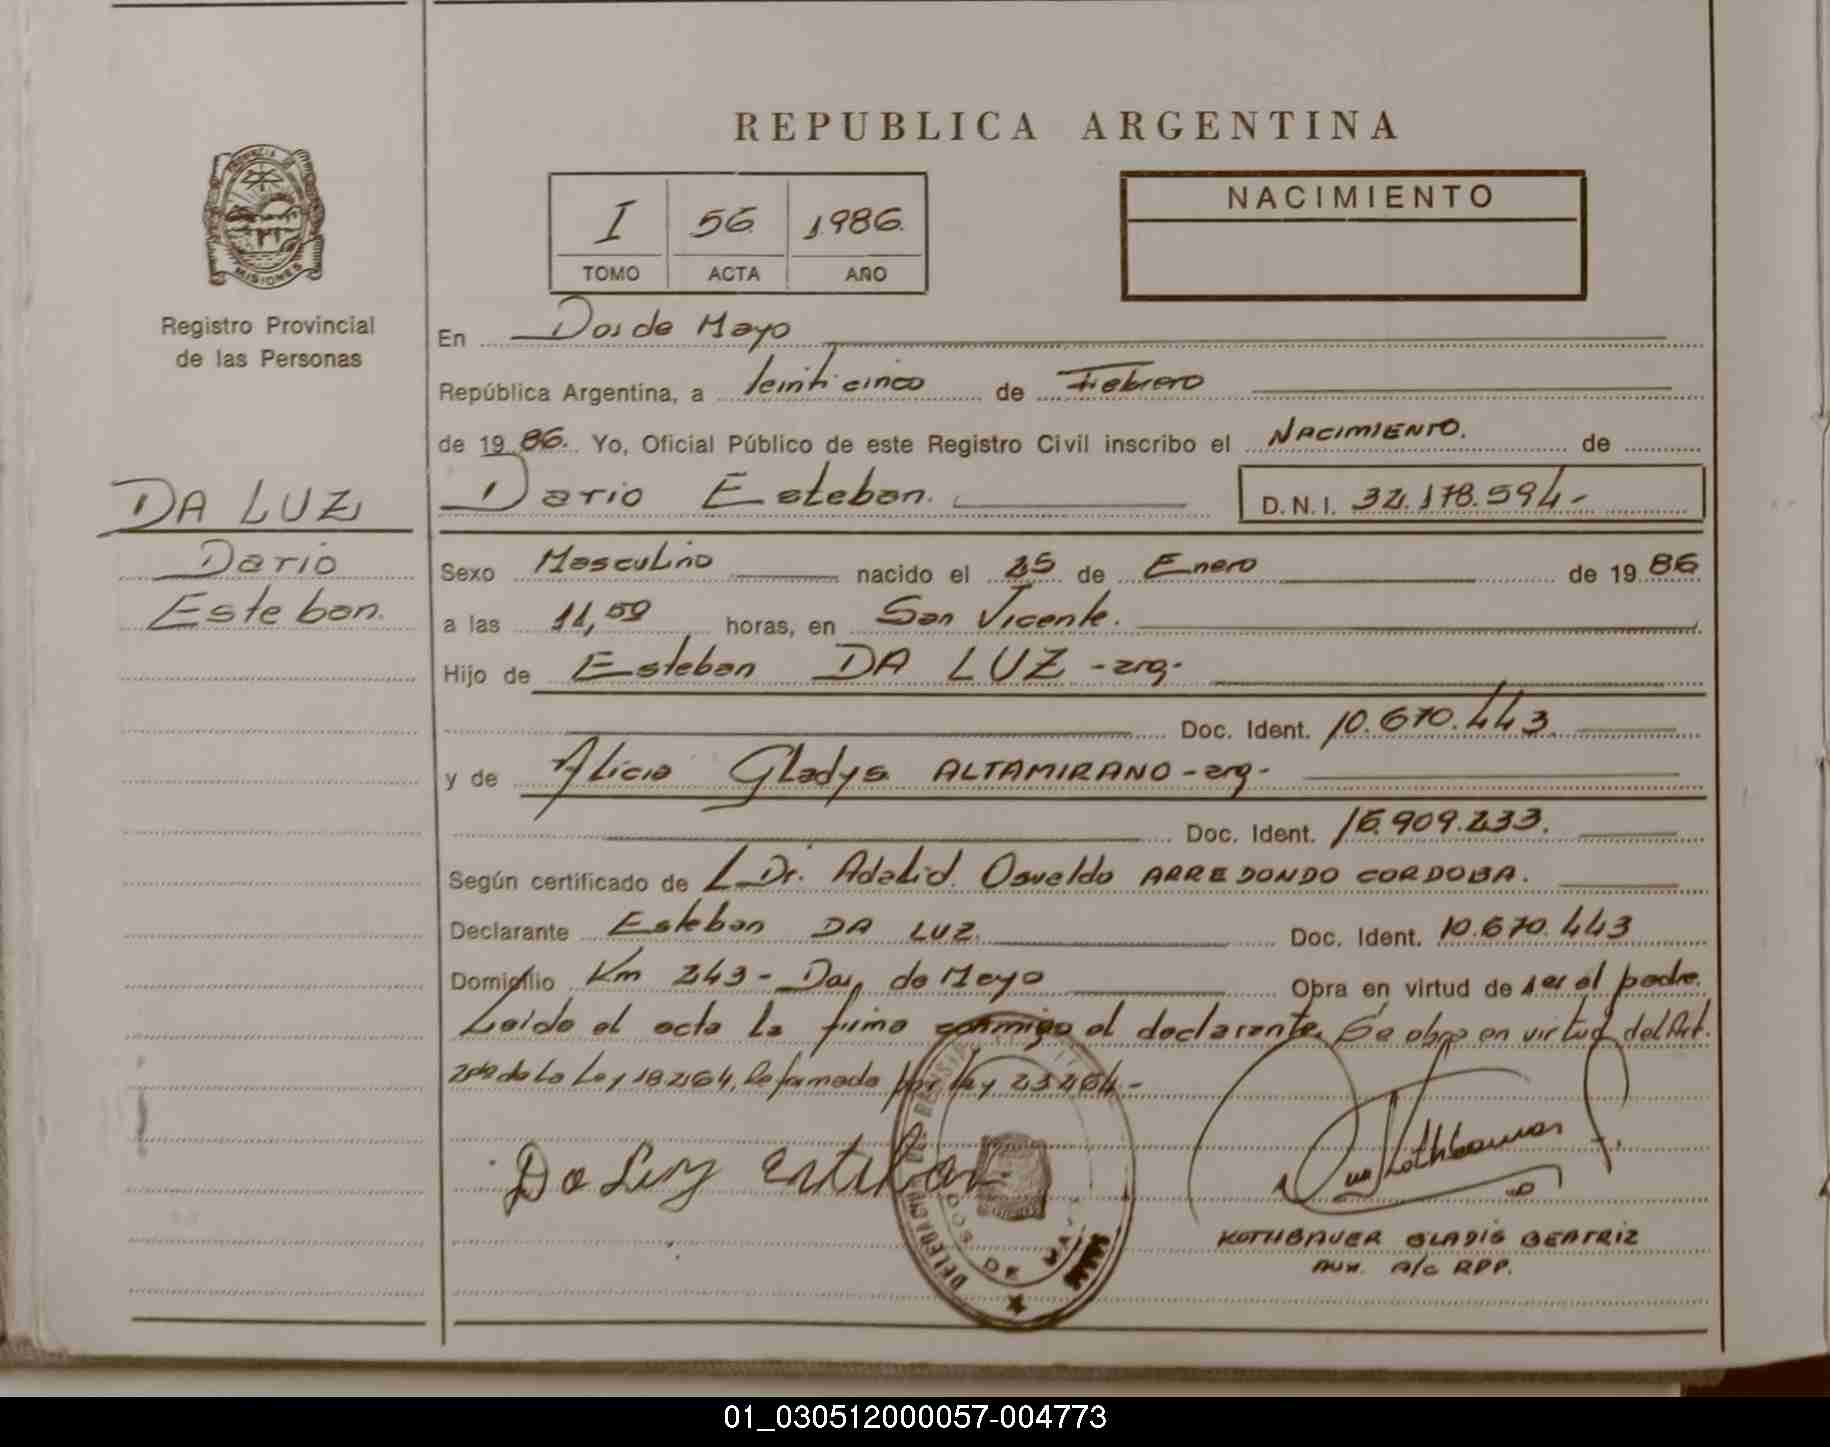 REPUBLICA ARGENTINA
PROVINCIA DE
MISIONES
Registro Provincial
de las Personas
I 56 1986
TOMO ACTA AÑO
NACIMIENTO
En Dos de Mayo
República Argentina, a Veinti cinco de Febrero
de 19 86. Yo, Oficial Público de este Registro Civil inscribo el NACIMIENTO. de
Dario Esteban. D.N.I. 32.178.594-
DA LUZ
Dario
Esteban.
Sexo Masculino nacido el 25 de Enero de 19 86
a las 11,50 horas, en San Vicente.
Hijo de Esteban DA LUZ -arg-
Doc. Ident. 10.670.443.
y de Alicia Gladys ALTAMIRANO -arg-
Doc. Ident. 16.909.233.
Según certificado de Dr. Adalid Osvaldo ARREDONDO CORDOBA.
Declarante Esteban DA LUZ Doc. Ident. 10.670.443
Domicilio Km 243 - Dos de Mayo Obra en virtud de ser el padre.
Leida el acta la firma conmigo el declarante. Se obra en virtud del Art.
2do de la Ley 18264, Reformada por Ley 23264.-
Da Luz Esteban
DELEGACION
DOS DE MAYO
KOTHBAUER GLADIS BEATRIZ
AUX. A/C RPP.
01_030512000057-004773